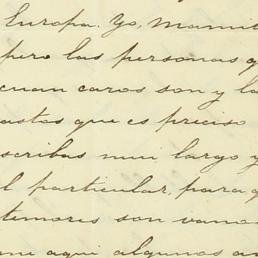 Europa. Yo, Mamit
pero las personas q
cuan caros son y la
astos que es preciso
scribas mui largo y
l particular, para q
temores son vanos
me aqui algunos a